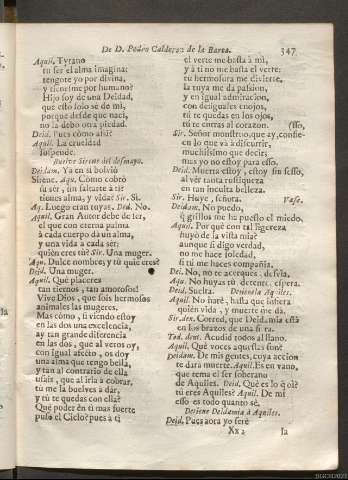 De D. Pedro Calderon de la Barca. 347
Aquil. Tyrano
tu ser el alma imagina:
tengote yo por divina,
y tienesme por humano?
Hijo soy de una Deidad,
que esto solo se de mi,
porque desde que naci,
no la debo otra piedad.
Deid. Pues cómo asi?
Aquil. La crueldad
suspende.
Buelve Sirene del desmayo.
Deidam. Ya en sí bolvió
Sirene. Aqu. Cómo cobró
tu ser, sin faltarte à ti
tienes alma, y vida? Sir. Sí.
Aq. Luego eran tuyas. Deid. No.
Aquil. Gran Autor debe de ser,
el que con eterna palma
à cada cuerpo dà un alma,
y una vida a cada ser:
quien eres tu? Sir. Una muger.
Aqu. Dulce nombre; y tù quie eres?
Deid. Una muger.
Aquil. Què placeres
tan tiernos, tan amorosos!
Vive Dios, que sois hermosos
animales las mugeres.
Mas cómo, si viendo estoy
en las dos una excelencia,
ay tan grande diferencia
en las dos, que al veros oy,
con igual afecto, os doy
una alma que tengo bella,
y tan al contrario de ella
usais, que al irla à cobrar,
tù me la buelves à dar,
y tù te quedas con ella?
Què poder en tù mas fuerte
puso el Cielo? pues à ti
el verte me basta à mi,
y à ti no me basta el verte:
tu hermosura me divierte,
la tuya me dà passion,
y en igual admiracion,
con desiguales enojos,
tù te quedas en los ojos,
tù te entras al corazon. (sso,
Sir. Señor monstruo, que ay, confie-
en lo que và à discurrir,
muchissimo que decir;
mas yo no estoy para esso.
Deid. Muerta estoy, estoy sin sesso,
al vér tanta rustiqueza
en tan inculta belleza.
Sir. Huye, señora. Vase.
Deidam. No puedo,
q grillos me ha puesto el miedo.
Aquil. Por què con tal ligereza
huyó de la vista mia?
aunque si digo verdad,
no me hace soledad,
si tú me haces compañia.
Dei. No, no te acerques, desvia.
Aqu. No huyas tù, detente, espera.
Deid. Suelta. Detienela Aquiles.
Aquil. No haré, hasta que infiera
quien vida, y muerte me dà.
Sir. den. Corred, que Deidamia està
en los brazos de una fiera.
Todos dent. Acudid todos al llano.
Aquil. Què voces aquestas son?
Deidam. De mi gentes, cuya accion
te dará muerte. Aquil. Es en vano,
que tema el ser soberano
de Aquiles. Deid. Què es lo q oì?
tú eres Aquiles? Aquil. De mi
esso es todo quanto sé.
Detiene Deidamia à Aquiles.
Deid. Pues aora yo seré
Xx 2 Ia